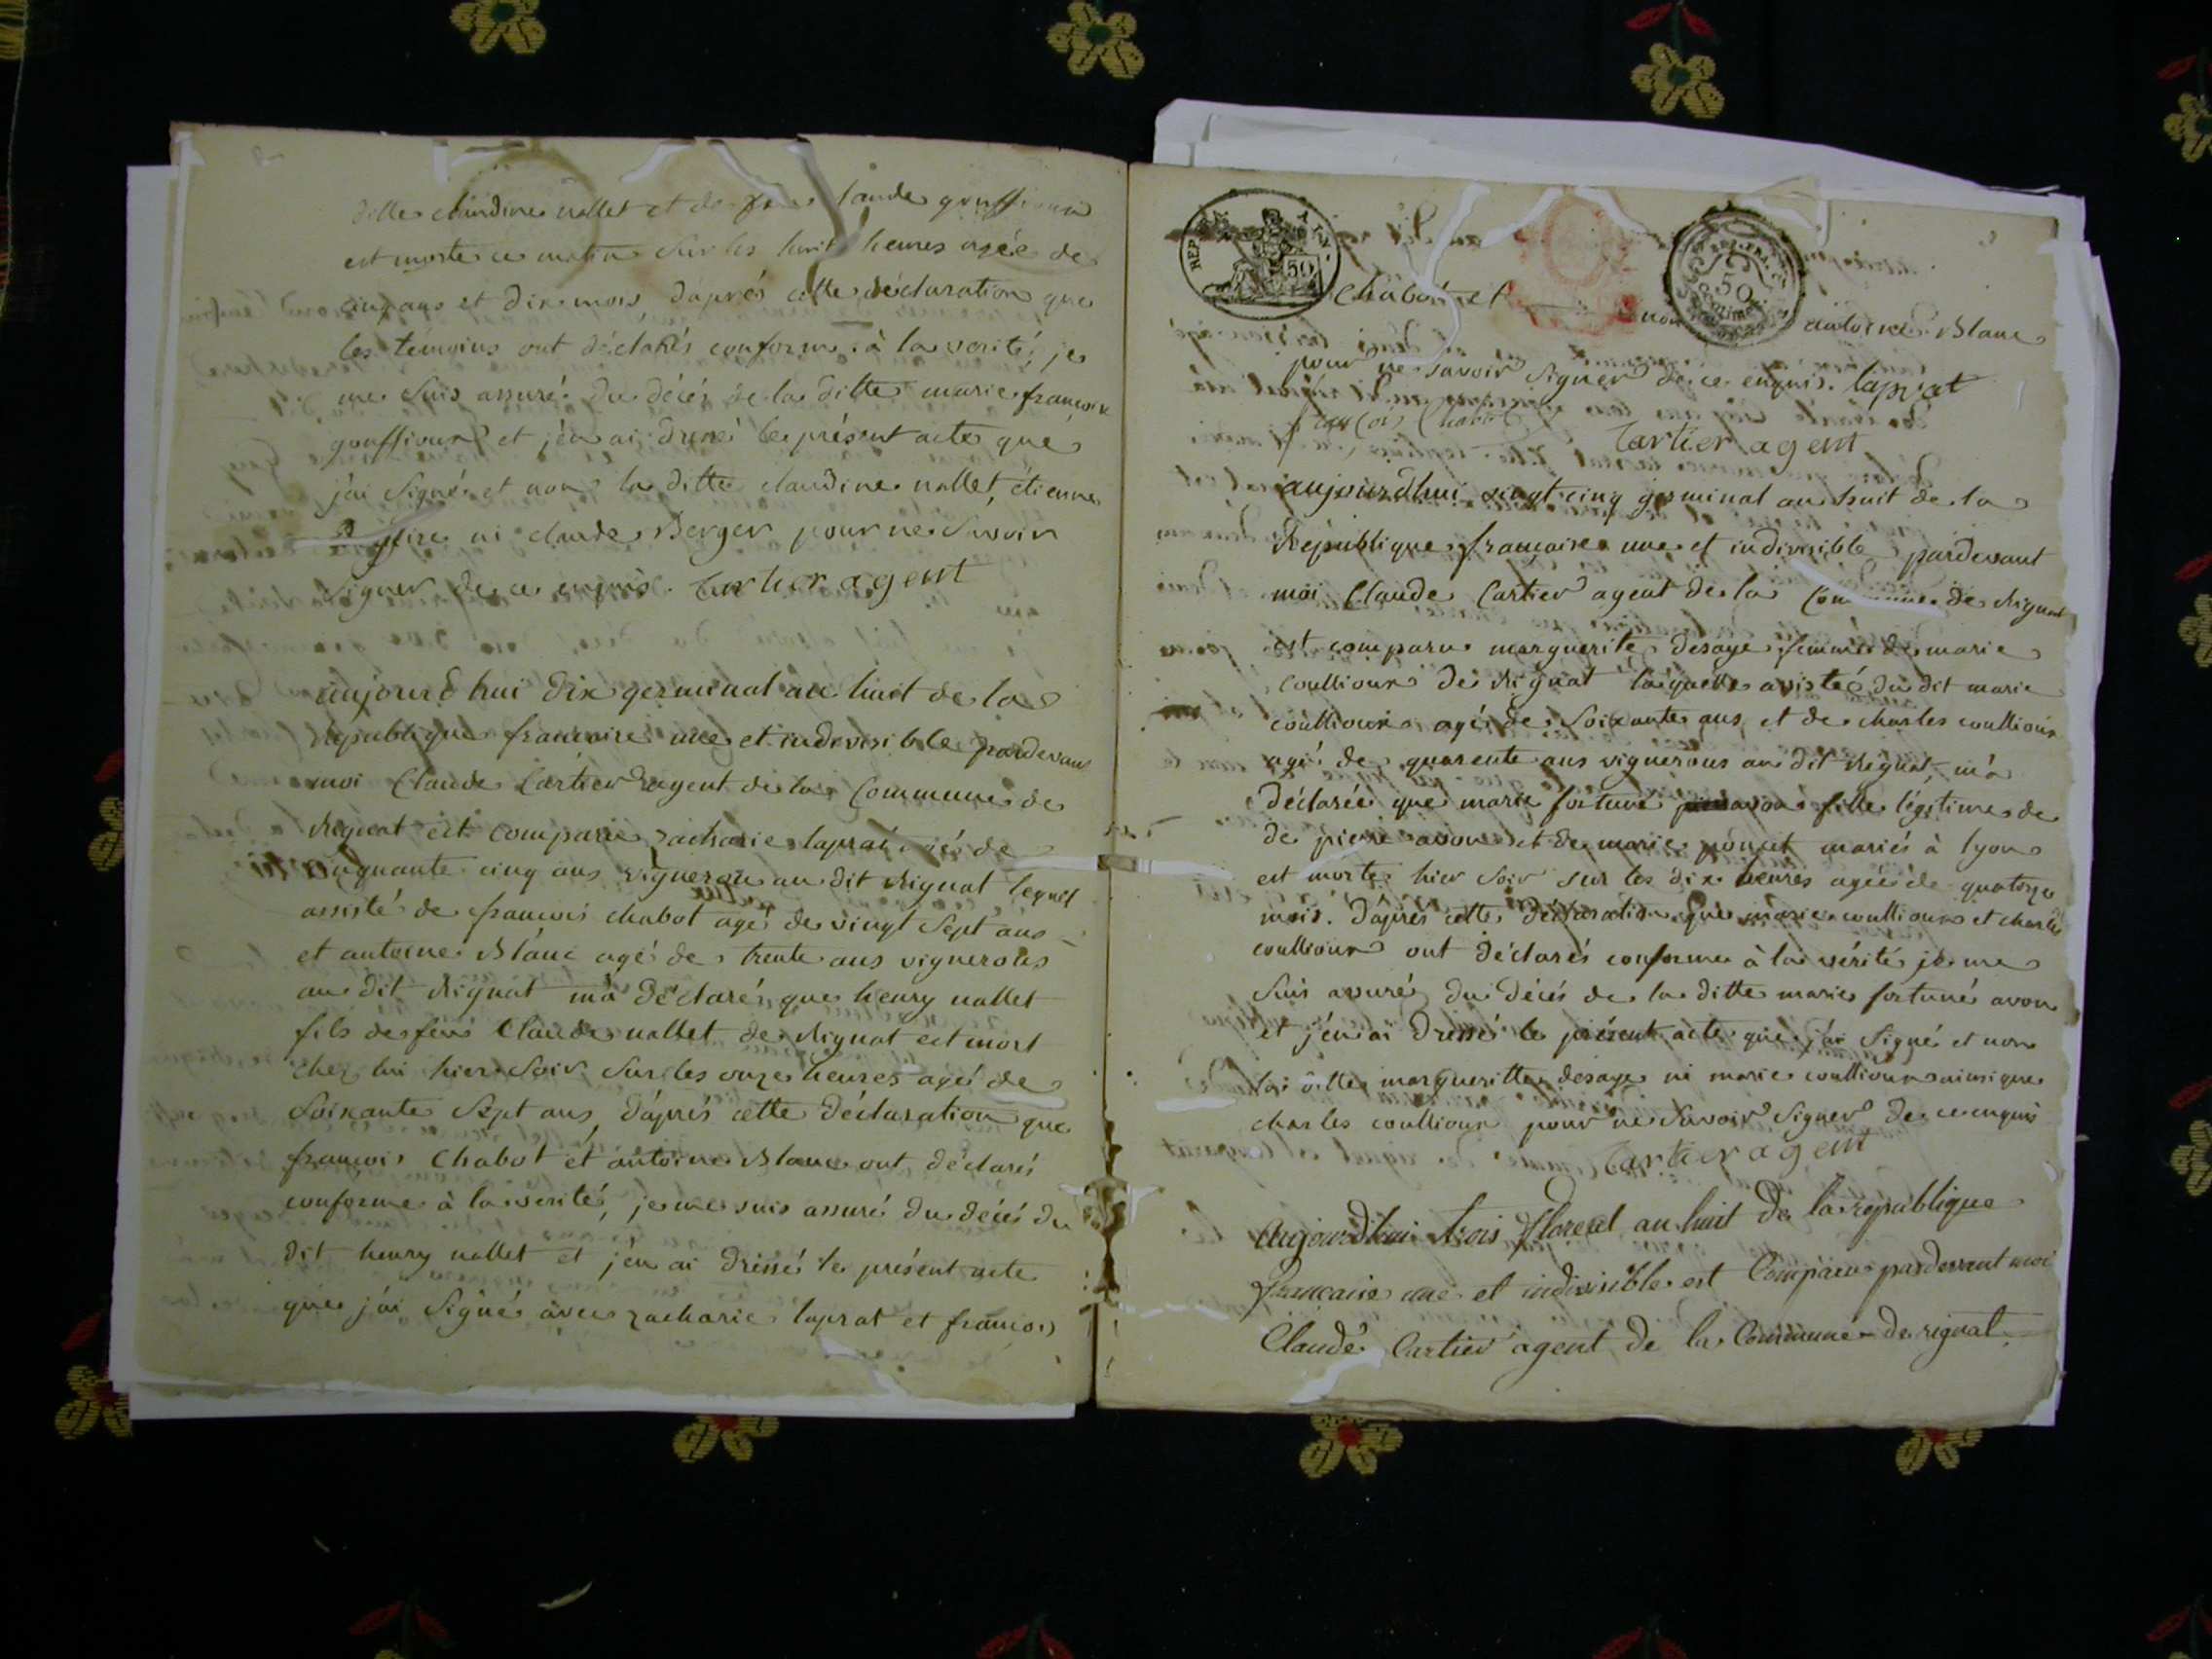 ditte claudine nallet et de feu Claude gouffiour
est morte ce matin sur les huit heures agée de
cinq ans et dix mois, d'aprés cette déclaration que
les témoins ont déclarés conforme à la verité, je
me suis assuré du décés de la ditte marie francoise
gouffiour et j'én ai dressé le présent acte que
j'ai signé et non la ditte claudine nallet, étienne
ni claude Berger pour ne savoir
signer de ce enquis. Cartier agent
aujourd'hui dix germinal an huit de la
république francaise une et indivisible pardevant
moi Claude Cartier agent de la Commune de
Rignat est comparu zacharie laprat agé de
cinquante cinq ans vigneron au dit Rignat lequel
assisté de francois chabot agé de vingt sept ans
et antoine Blanc agé de trente ans vignerons
au dit Rignat m'a déclaré que henry nallet
fils de feu Claude nallet de Rignat est mort
chez lui hier soir sur les onze heures agé de
soixante sept ans, d'aprés cette déclaration que
francois Chabot et antoine Blanc ont déclarés
conforme à la verité, je me suis assuré du décés du
dit henry nallet et j'én ai dressé le présent acte
que j'ai signé avec zacharie laprat et francois
REP FRA
50
50
Chabot et non antoine Blanc
pour ne savoir signer de ce enquis. laprat
francois Chabot
Cartier agent
aujourd'hui vingt cinq germinal an huit de la
République francaise une et indivisible pardevant
moi Claude Cartier agent de la Commune de Rignat
est comparu marguerite desaye femme de marie
coullioux de Rignat laquelle assistée du dit marie
coullioux agé de soixante ans et de charles coullioux
agé de quarente ans vignerons au dit Rignat, m'a
déclarée que marie fortuné avon fille légitime de
de pierre avon et de marie poncet mariés à lyon
est morte hier soir sur les dix heures agée de quatorze
mois. d'aprés cette déclaration que marie coullioux et charles
coullioux ont déclarés conforme à la vérité je me
suis assuré du décés de la ditte marie fortuné avon
et j'én ai dressé le présent acte que j'ai signé et non
la ditte margueritte desaye ni marie coullioux ainsi que
charles coullioux pour ne savoir signer de ce enquis
Cartier agent
aujourd'hui trois floreal an huit de la république
francaise une et indivisible est Comparu pardevant moi
Claude Cartier agent de la Commune de rignat